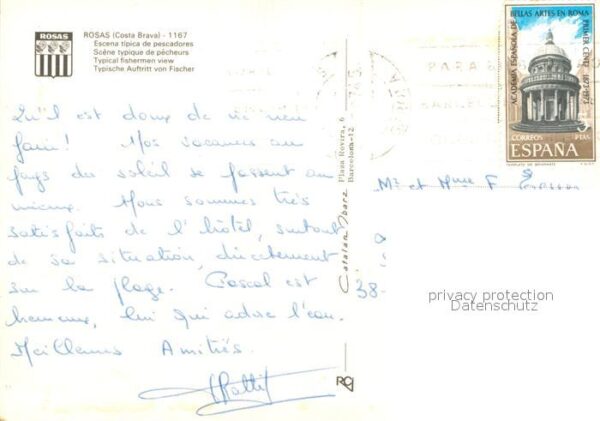 ROSAS
ROSAS (Costa Brava) - 1167
Escena típica de pescadores
Scène typique de pêcheurs
Typical fishermen view
Typische Auftritt von Fischer
Qu'il est doux de ne rien
faire! Nos vacances au
pays du soleil se passent au
mieux. Nous sommes très
satisfaits de l'hôtel, surtout
de sa situation, directement
sur la plage. Pascal est
heureux, lui qui adore l'eau.
Meilleures Amitiés.
Catalan Ibarz
Plaza Rovira, 6
Barcelona-12
RCI
ACADEMIA ESPAÑOLA DE
BELLAS ARTES EN ROMA
PRIMER CENT. 1873-1973
CORREOS
PTAS
ESPAÑA
PARA
BARCEL
Mr et Mme F
38-
privacy protection
Datenschutz